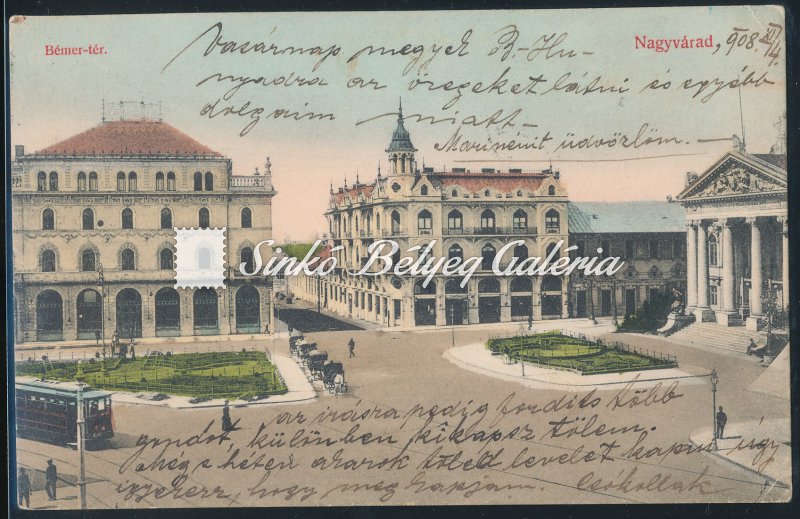 Bémer-tér.
Nagyvárad, 908. XI/4.
Vasárnap megyek B-Hu-
nyadra az öregeket látni és egyébb
dolgaim miatt
Marinenit üdvözlöm.
Sinkó Bélyeg Galéria
az írásra pedig fordits több
gondot, különben kikapsz tölem.
Még e héten akarok töled levelet kapni úgy
igyekezz, hogy meg kapjam. Csókollak